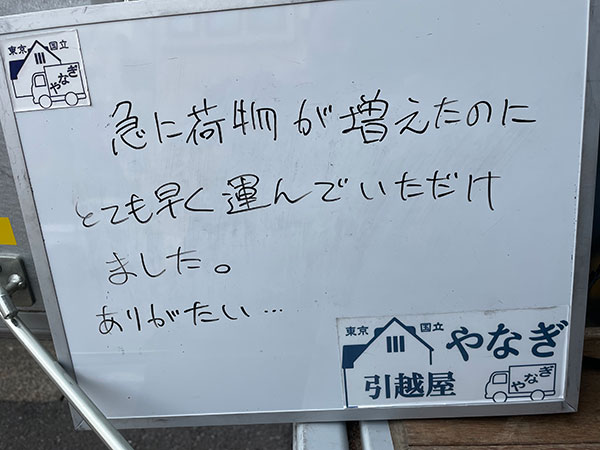 東京 国立
やなぎ
急に荷物が増えたのに
とても早く運んでいただけ
ました。
ありがたい…
東京 国立
やなぎ
引越屋
やなぎ